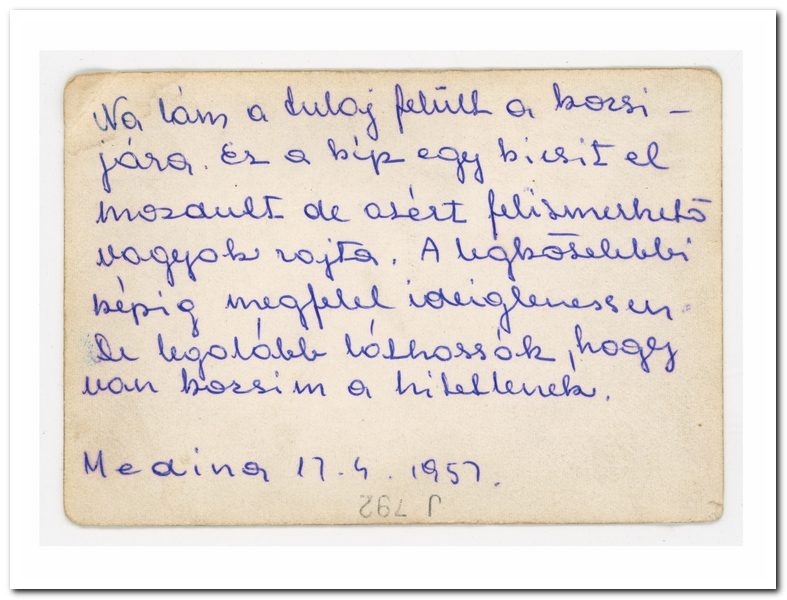 Na lám a tulaj felült a kocsi –
jára. Ez a kép egy kicsit el
mozdult de azért felismerhető
vagyok rajta. A legközelebbi
képig megfelel ideiglenessen.
De legalább láthassák, hogy
van kocsim a hitetlenek.
Medina 17.4. 1957.
J 792